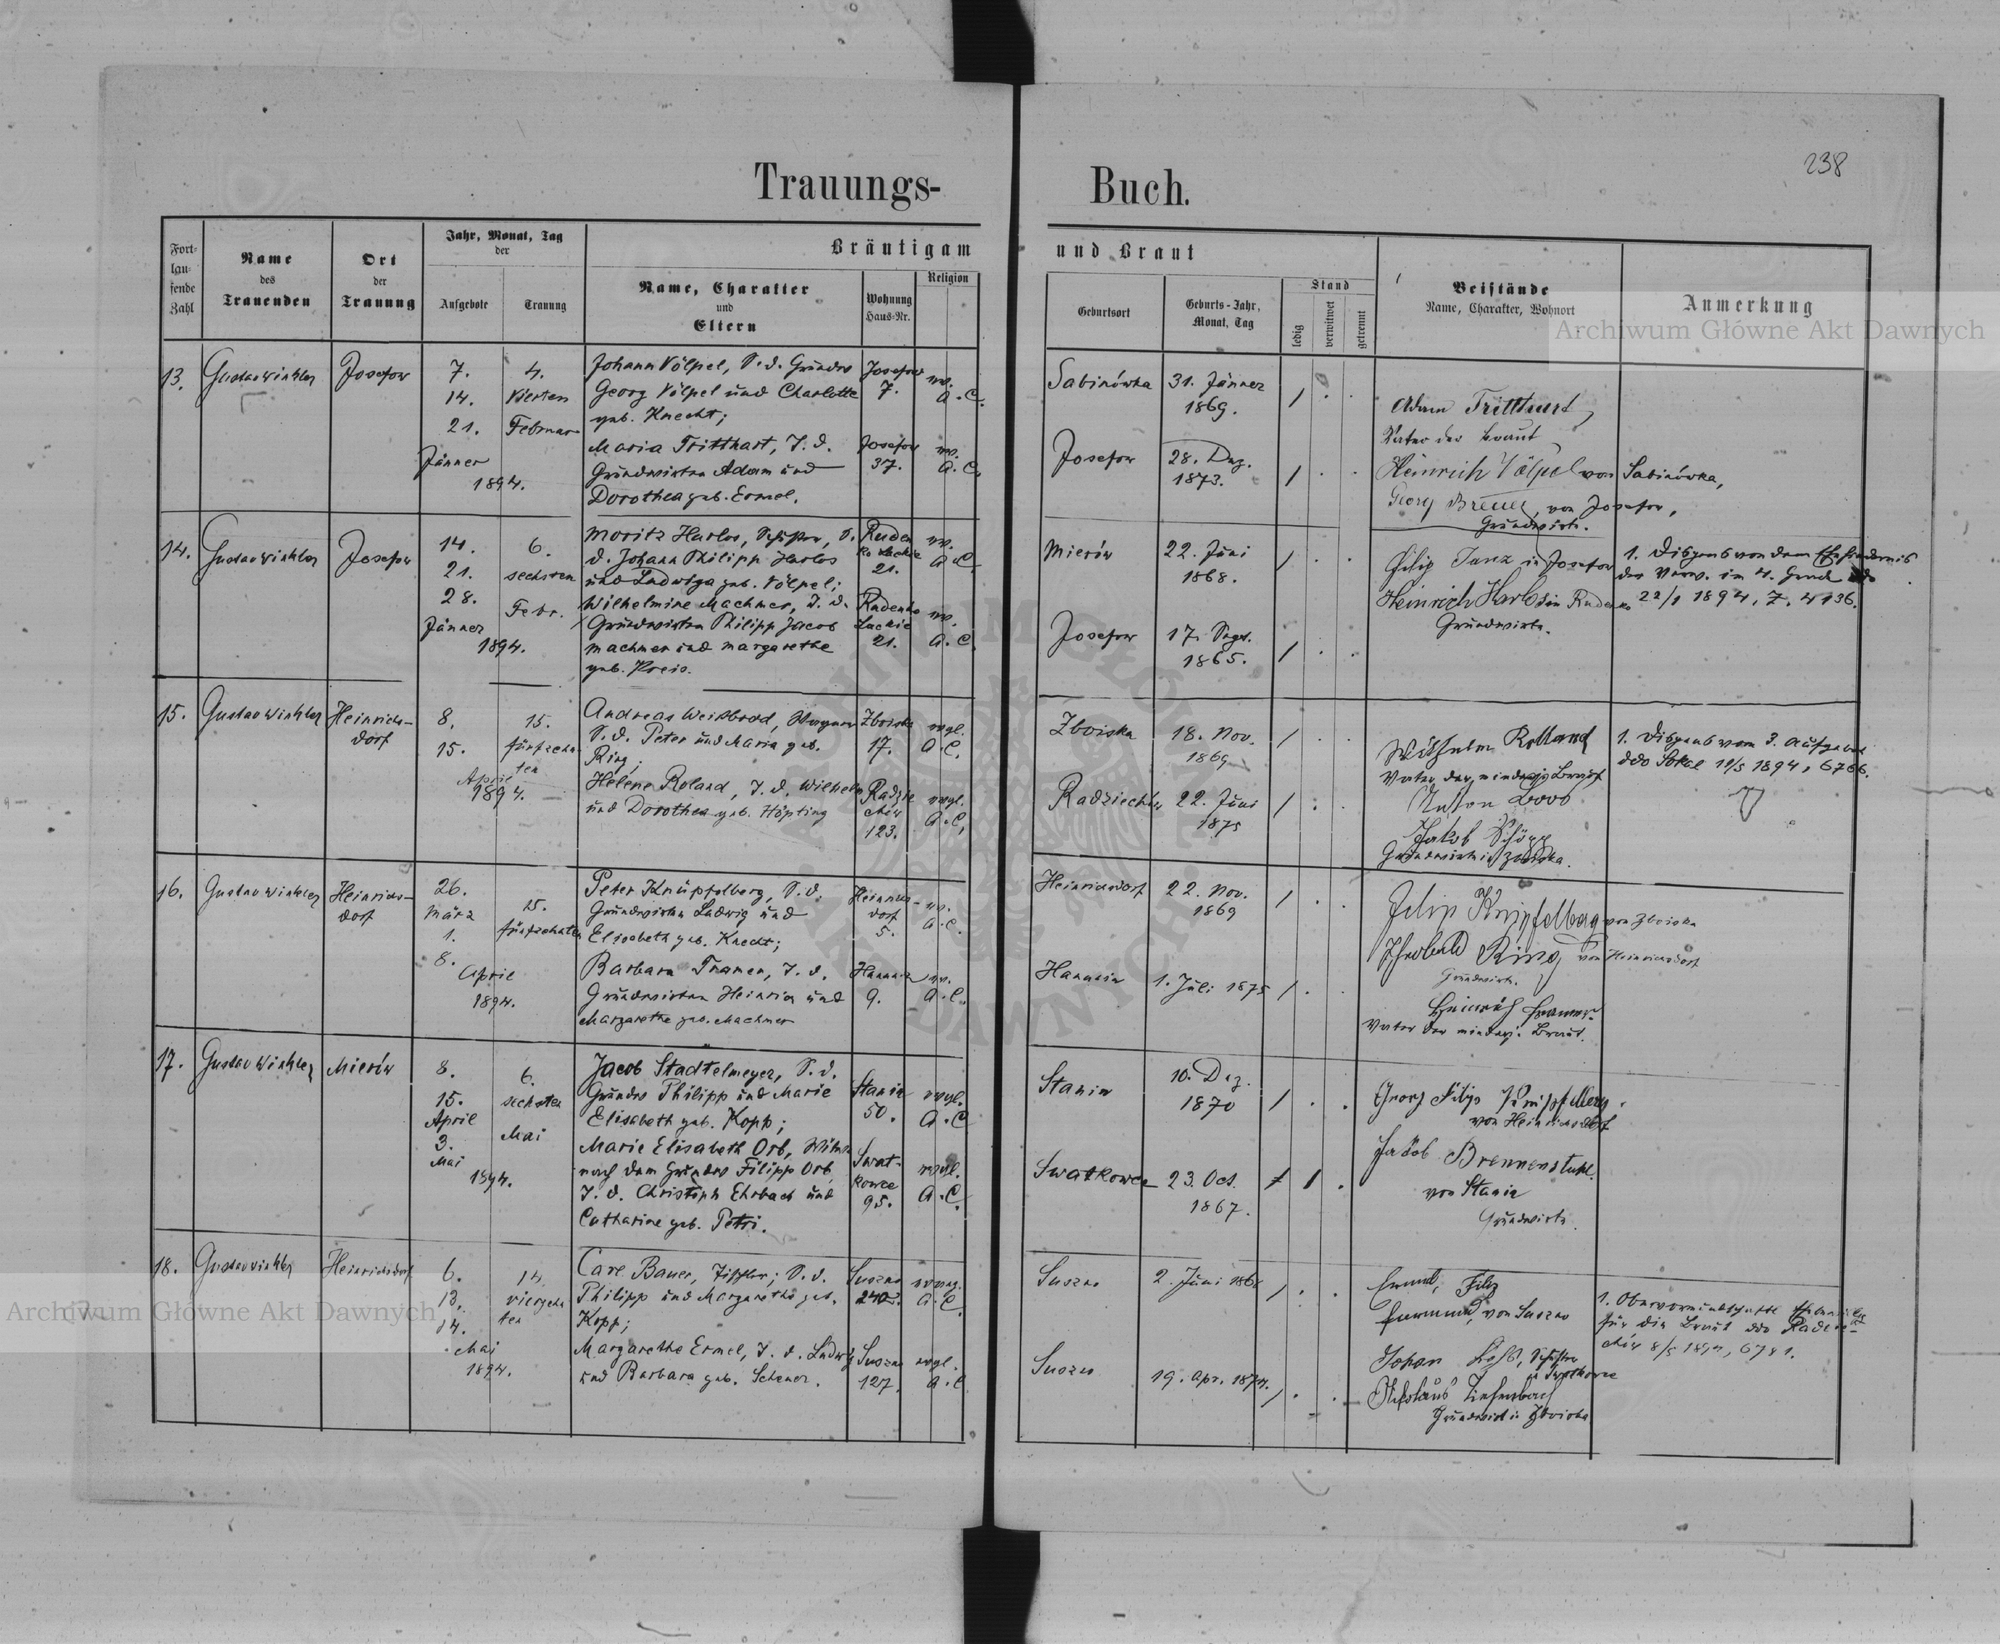 238
Trauungs-Buch.
Fort-
lau-
fende
Zahl
Name
des
Trauenden
Ort
der
Trauung
Jahr, Monat, Tag
der
Aufgebote
Trauung
Bräutigam und Braut
Name, Charakter
und
Eltern
Wohnung
Haus-Nr.
Religion
Geburtsort
Geburts-Jahr,
Monat, Tag
Stand
ledig
verwitwet
getrennt
Beistände
Name, Charakter, Wohnort
Anmerkung
Archiwum Główne Akt Dawnych
13.
Gustav Winkler
Josefow
7.
14.
21.
Jänner
1894.
4.
vierten
Februar
Johann Völpel, S. d. Grundw
Georg Völpel und Charlotte
geb. Knecht;
Josefow
7.
A. C.
Maria Tritthart, T. d.
Grundwirten Adam und
Dorothea geb. Ermel.
Josefow
37.
A. C.
Sabinówka
31. Jänner
1869.
Josefow
28. Dez.
1873.
Adam Tritthart,
Vater der Braut
Heinrich Völpel von Sabinówka,
Georg Breuer, von Josefow,
Grundwirte.
14.
Gustav Winkler
Josefow
14.
21.
28.
Jänner
1894.
6.
sechsten
Febr.
Moritz Harlos, S.
d. Johann Philipp Harlos
und Ludwiga geb. Völpel;
Ruden
ko Lackie
21.
A. C.
Wilhelmine Machmer, T. d.
Grundwirten Philipp Jacob
Machmer und Margarethe
geb. Kreis.
Rudenko
Lackie
21.
A. C.
Mierów
22. Juni
1868.
Josefow
17. Sept.
1865.
Filip Janz in Josefow
Heinrich Harlos in Rudenko
Grundwirte.
1. Dispens von dem Ehehindernis
der Verw. im 4. Grade ddo
22/1 1894, Z. 4136.
15.
Gustav Winkler
Heinrichs-
dorf
8.
15.
April
1894.
15.
fünfzehn-
ten
Andreas Weißbrod, Wagner
S. d. Peter und Maria geb.
Ring;
Zboiska
17.
evgl.
A. C.
Helene Roland, T. d. Wilhelm
und Dorothea geb. Höpting
Radzie
chów
123.
evgl.
A. C.
Zboiska
18. Nov.
1869
Radziechów
22. Juni
1875
Wilhelm Rolland
Vater der minderj. Braut
Anton Loos
Jakob Schöpp
Grundwirte in Zboiska.
1. Dispens vom 3. Aufgebot
ddo Sokal 12/5 1894, 6766.
16.
Gustav Winkler
Heinrichs-
dorf
26.
März
1.
8.
April
1894.
15.
fünfzehnten
Peter Knüpfelberg, S. d.
Grundwirten Ludwig und
Elisabeth geb. Knecht;
Heinrichs-
dorf
5.
A. C.
Barbara Kramer, T. d.
Grundwirten Heinrich und
Margarethe geb. Machmer
Hanunin
9.
A. C.
Heinrichsdorf
22. Nov.
1869
Hanunin
1. Juli 1875
Filip Knipfelberg von Zboiska
Ring von Heinrichsdorf
Grundwirte.
Heinrich Kramer
Vater der minderj. Braut.
17.
Gustav Winkler
Mierów
8.
15.
April
3.
Mai
1894.
6.
sechsten
Mai
Jacob Stadtelmeyer, S. d.
Grundw Philipp und Marie
Elisabeth geb. Kopp;
Stanin
50.
evgl.
A. C.
Marie Elisabeth Orb, Witwe
nach dem Grundw Filipp Orb,
T. d. Christoph Ehrbach und
Catharine geb. Petri.
Swat-
kowce
95.
evgl.
A. C.
Stanin
10. Dez.
1870
Swatkowce
23. Oct.
1867.
Georg Filip Knipfelberg
von Heinrichsdorf
Jakob Brennenstuhl
von Stanin
Grundwirte.
18.
Gustav Winkler
Heinrichsdorf
6.
13.
14.
Mai
1894.
14.
vierzehn
ten
Carl Bauer, Tischler; S. d.
Philipp und Margarethe geb.
Kopp;
Suszno
240.
A. C.
Margarethe Ermel, T. d. Ludwig
und Barbara geb. Scherer.
Suszno
127.
evgl.
A. C.
Suszno
2. Juni 1868
Suszno
19. Apr. 1874.
von Suszno
Johan
in Swatkowce
Nikolaus Tiefenbach
Grundwirt in Zboiska
1. Obervormundschaftl.
für die Braut ddo Radzie-
chów 8/5 1894, 6781.
Archiwum Główne Akt Dawnych